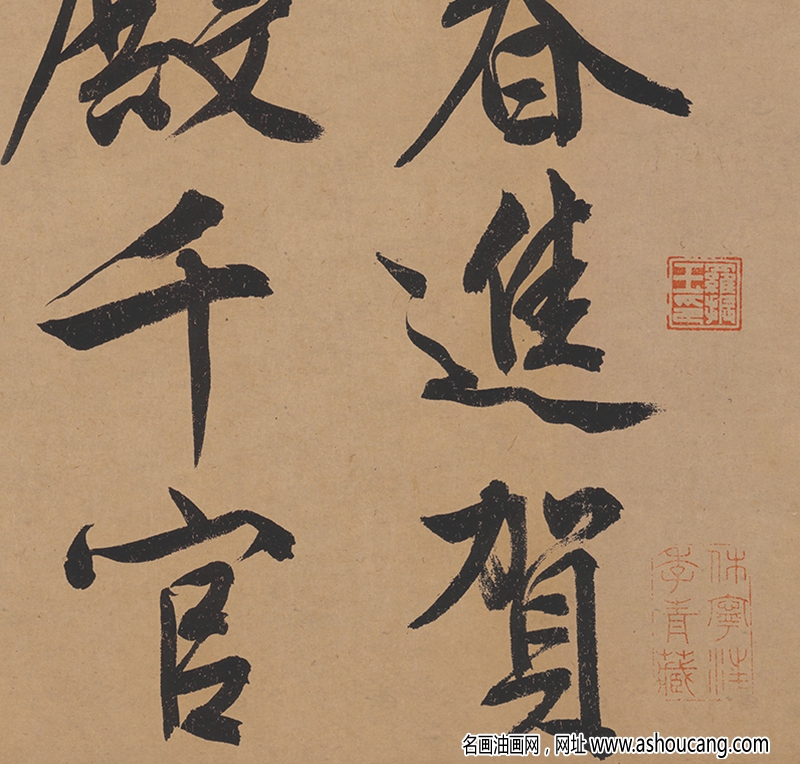 休寧汪
季青藏
春進賀
殿千官
名画油画网，网址 www.ashoucang.com